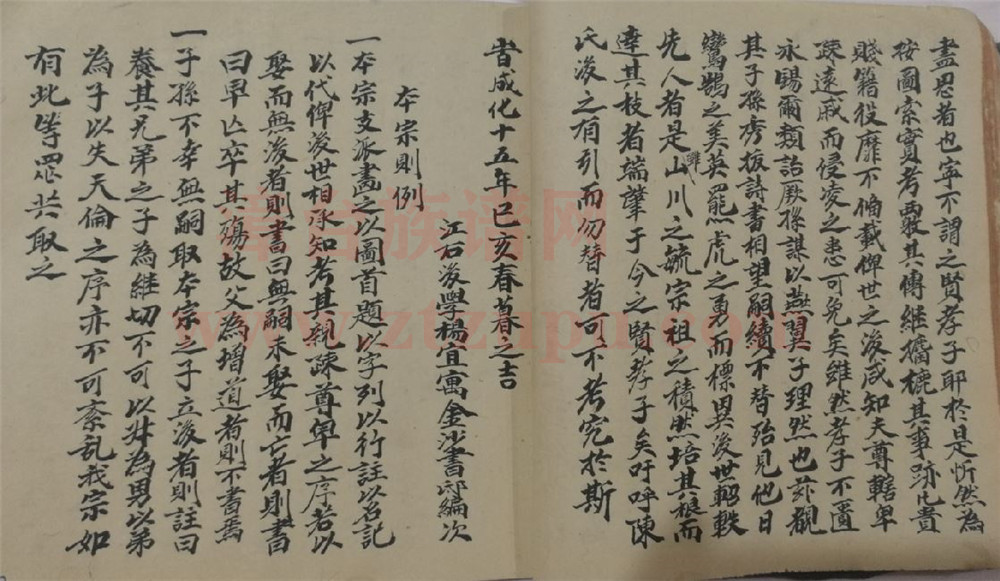 盡思者也寧不謂之賢孝子耶於是忻然為
按圖索實考覈其傳継攟摭其事跡凡貴
賤籍役靡不備載俾世之後咸知夫尊轄卑
踈遠戚而侵凌之患可免矣雖然孝子不匱
永賜爾類詒厥孫謀以燕翼子理然也茲覩
其子孫秀拔詩書相望嗣續不替殆見他日
鸞鵠之美英羆虎之勇而標異後世軺軼
先人者是雖山川之毓宗祖之積然培其根而
達其枝者端肇于今之賢孝子矣吁呼陳
氏後之有引而勿替者可不考究於斯
旹成化十五年已亥春暮之吉
江右後學楊宜寓金沙書邸編次
本宗則例
一本宗支派畫之以圖首題以字列以行註以名記
以代俾後世相承知考其親疎尊卑之序若以
娶而無後者則書曰無嗣未娶而亡者則書
曰早亾卒其殤故父為增道者則不書焉
一子孫不幸無嗣取本宗之子立後者則註曰
養其兄弟之子為維切不可以姪為男以弟
為子以失天倫之序亦不可紊乱我宗如
有此等眾共取之
津台族谱网
www.ztzupu.com